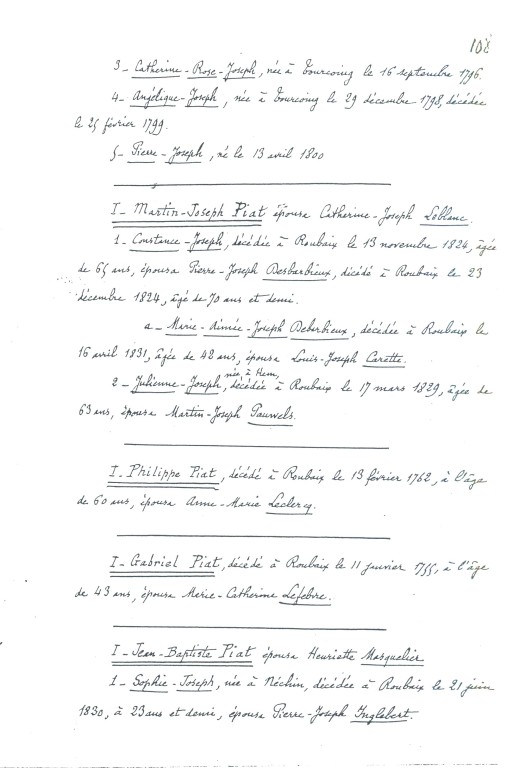 108
3 - Catherine - Rose - Joseph, née à Tourcoing le 16 septembre 1796.
4 - Angélique - Joseph, née à Tourcoing le 29 décembre 1798, décédée
le 25 février 1799.
5 - Pierre - Joseph, né le 13 avril 1800
I - Martin - Joseph Piat épousa Catherine - Joseph Leblanc.
1 - Constance - Joseph, décédée à Roubaix le 13 novembre 1824, âgée
de 65 ans, épousa Pierre - Joseph Desbarbieux, décédé à Roubaix le 23
décembre 1824, âgé de 70 ans et demi.
a - Marie - aimée - Joseph Debarbieux, décédée à Roubaix le
16 avril 1831, âgée de 42 ans, épousa Louis - Joseph Carette.
née à Hem,
2 - Julienne - Joseph, décédée à Roubaix le 17 mars 1829, âgée de
63 ans, épousa Martin - Joseph Pauwels.
I - Philippe Piat, décédé à Roubaix le 13 février 1762, à l'âge
de 60 ans, épousa Anne - Marie Leclercq.
I - Gabriel Piat, décédé à Roubaix le 11 janvier 1755, à l'âge
de 43 ans, épousa Marie - Catherine Lefebvre.
I - Jean - Baptiste Piat épousa Henriette Masquelier
1 - Sophie - Joseph, née à Néchin, décédée à Roubaix le 21 juin
1830, à 23 ans et demi, épousa Pierre - Joseph Inglebert.